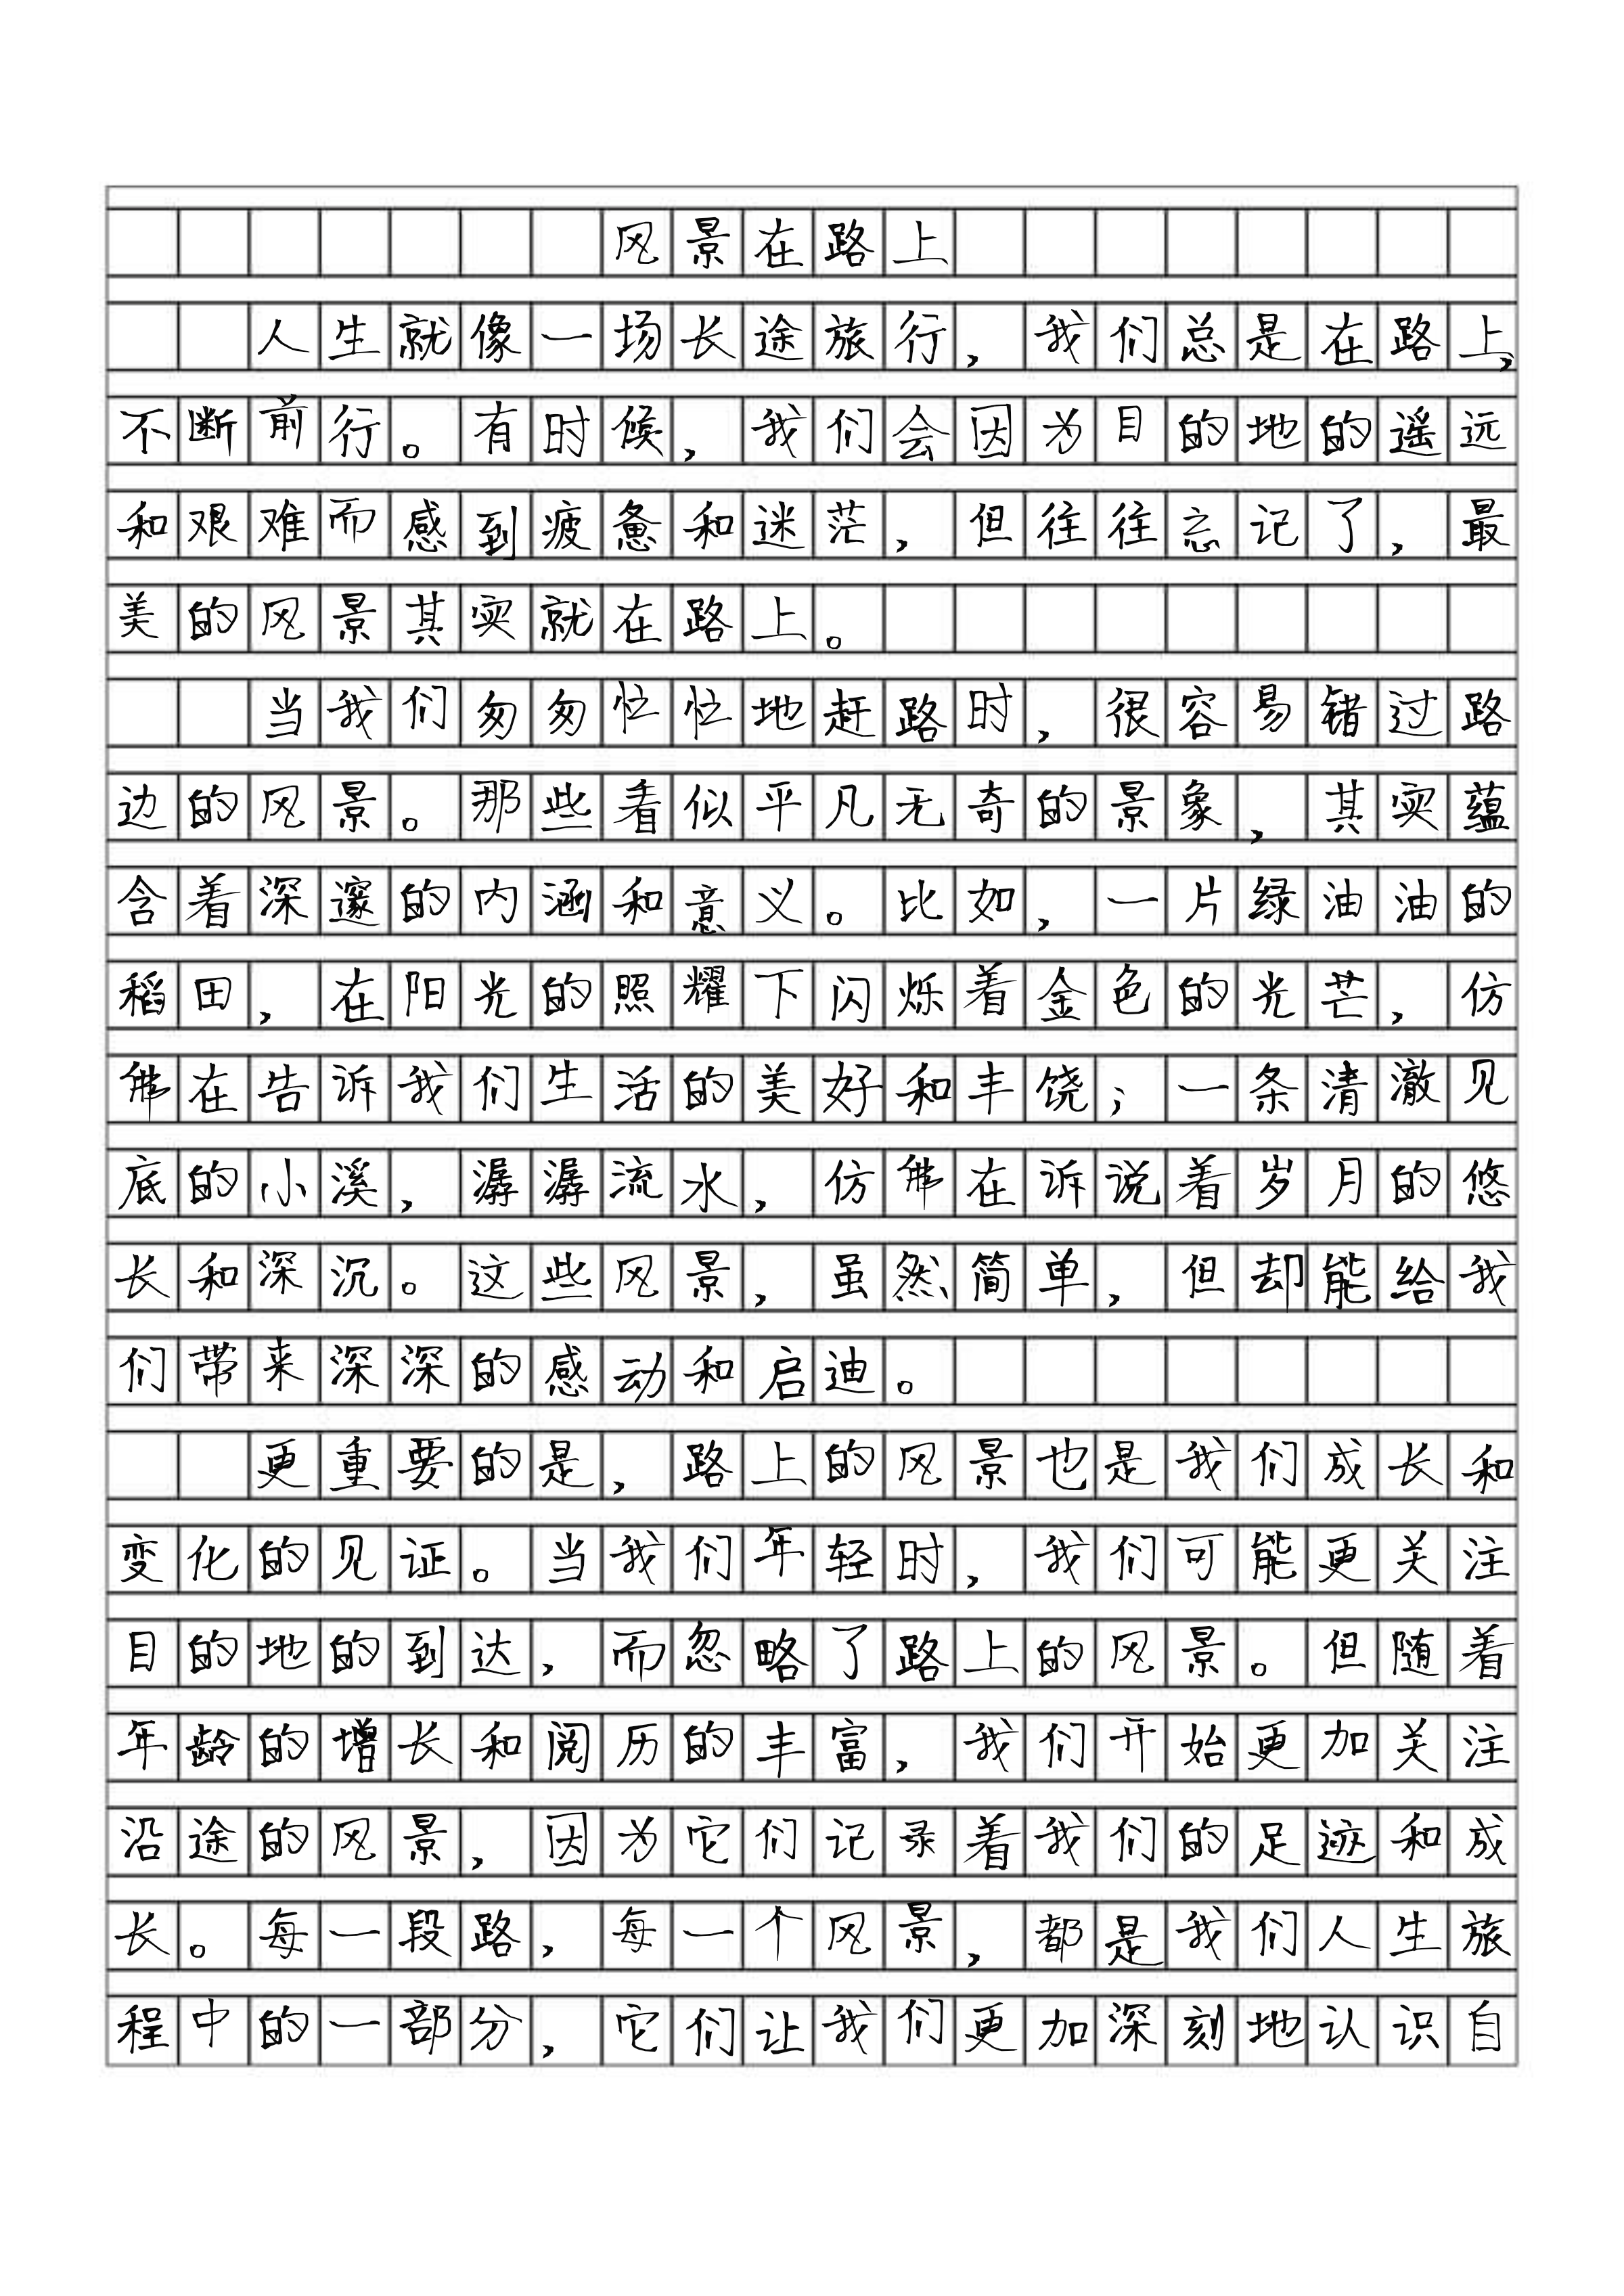 风景在路上
人生就像一场长途旅行，我们总是在路上，
不断前行。有时候，我们会因为目的地的遥远
和艰难而感到疲惫和迷茫，但往往忘记了，最
美的风景其实就在路上。
当我们匆匆忙忙地赶路时，很容易错过路
边的风景。那些看似平凡无奇的景象，其实蕴
含着深邃的内涵和意义。比如，一片绿油油的
稻田，在阳光的照耀下闪烁着金色的光芒，仿
佛在告诉我们生活的美好和丰饶；一条清澈见
底的小溪，潺潺流水，仿佛在诉说着岁月的悠
长和深沉。这些风景，虽然简单，但却能给我
们带来深深的感动和启迪。
更重要的是，路上的风景也是我们成长和
变化的见证。当我们年轻时，我们可能更关注
目的地的到达，而忽略了路上的风景。但随着
年龄的增长和阅历的丰富，我们开始更加关注
沿途的风景，因为它们记录着我们的足迹和成
长。每一段路，每一个风景，都是我们人生旅
程中的一部分，它们让我们更加深刻地认识自